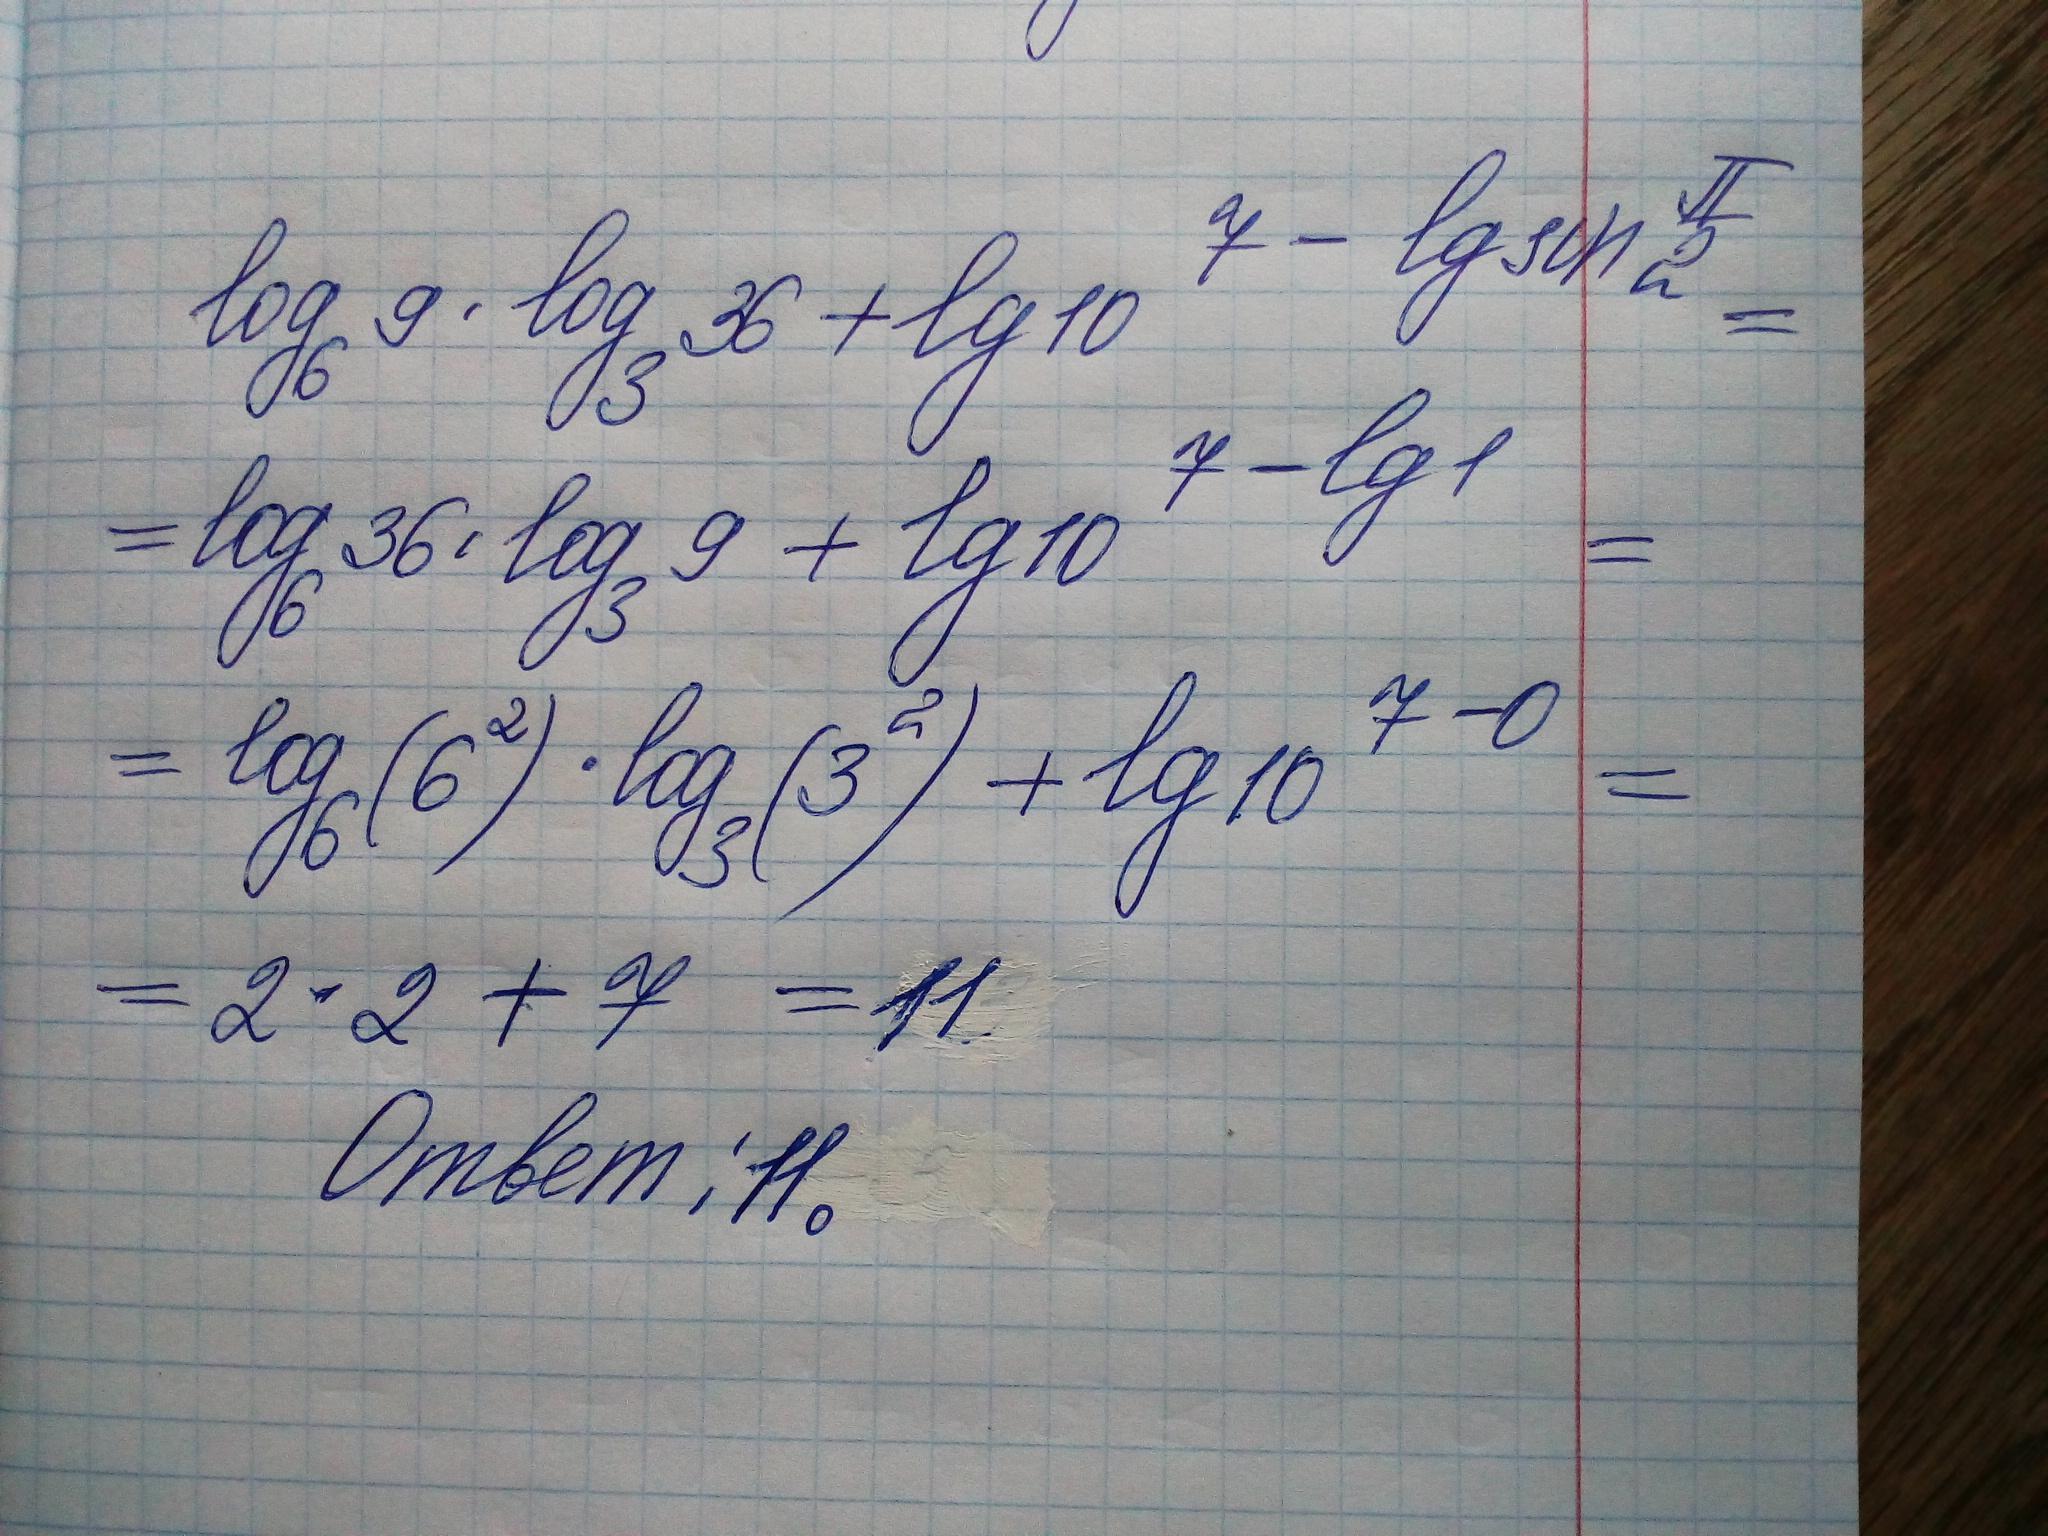 log₆ 9 · log₃ 36 + lg 10^(7 − lg sin π/2) =
= log₆ 36 · log₃ 9 + lg 10^(7 − lg 1) =
= log₆ (6²) · log₃ (3²) + lg 10^(7 − 0) =
= 2 · 2 + 7 = 11.
Ответ: 11.